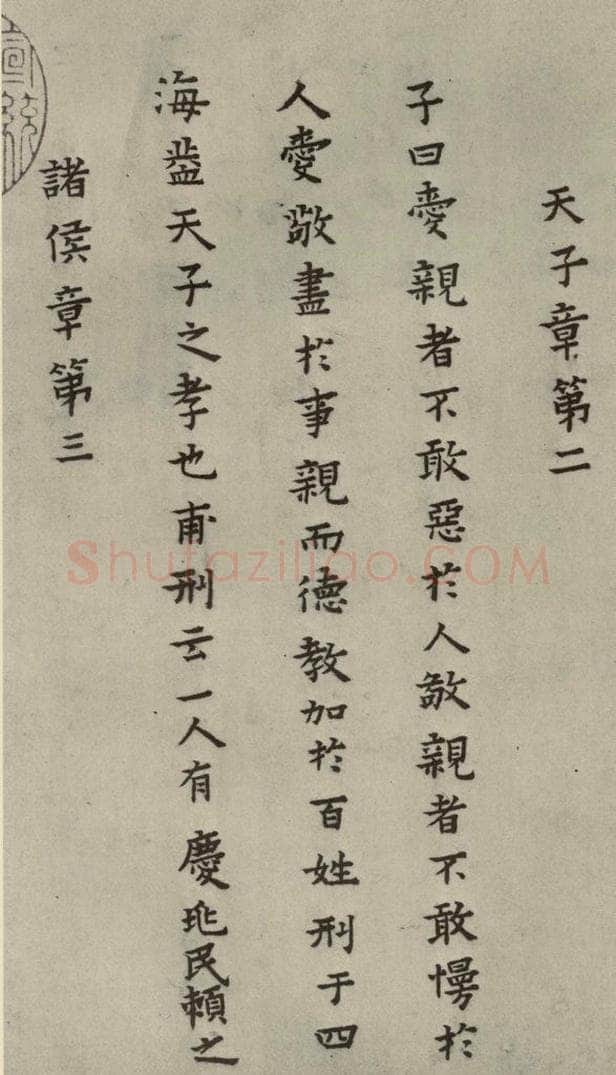 天子章第二
子曰愛親者不敢惡於人敬親者不敢慢於
人愛敬盡於事親而德教加於百姓刑于四
海盖天子之孝也甫刑云一人有慶兆民賴之
諸侯章第三
Shufaziliao.COM